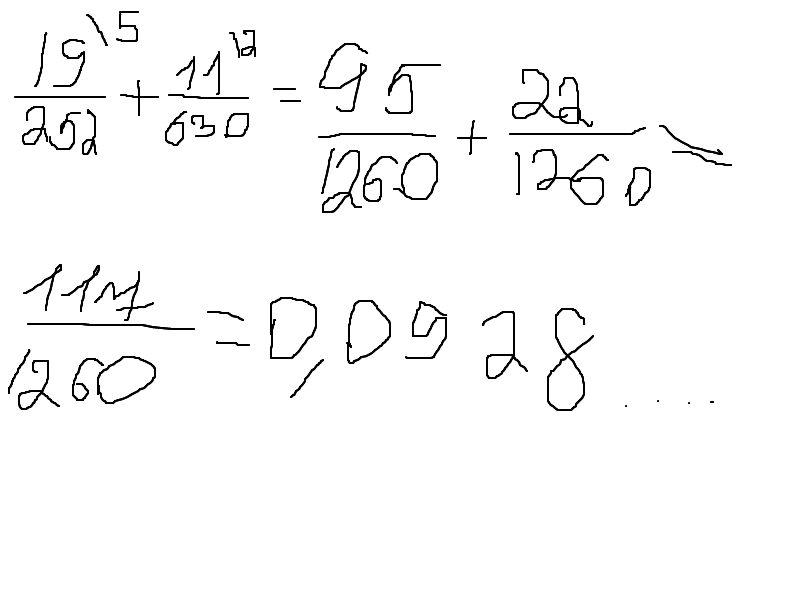 19\5/252 + 11\2/630 = 95/1260 + 22/1260 =
117/1260 = 0,0928....